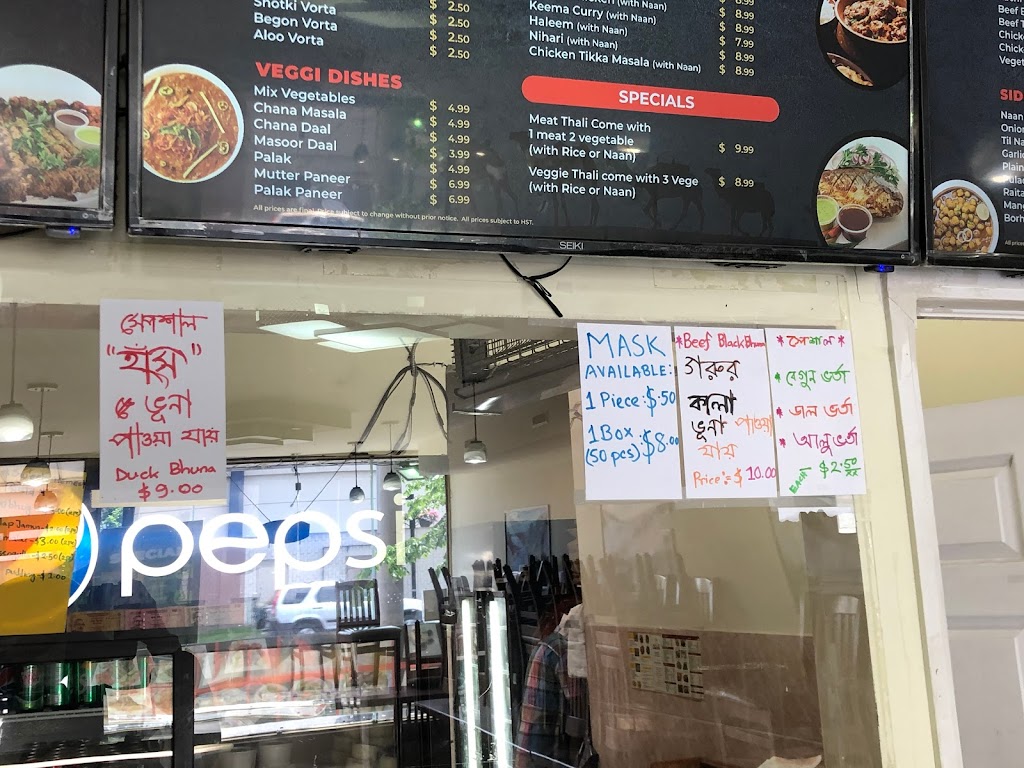 Shotki Vorta $ 2.50
Begon Vorta $ 2.50
Aloo Vorta $ 2.50
VEGGI DISHES
Mix Vegetables $ 4.99
Chana Masala $ 4.99
Chana Daal $ 4.99
Masoor Daal $ 3.99
Palak $ 4.99
Mutter Paneer $ 6.99
Palak Paneer $ 6.99
All prices are final. Price subject to change without prior notice. All prices subject to HST.
(with Naan) $ 8.99
Keema Curry (with Naan) $ 8.99
Haleem (with Naan) $ 8.99
Nihari (with Naan) $ 7.99
Chicken Tikka Masala (with Naan) $ 8.99
SPECIALS
Meat Thali Come with
1 meat 2 vegetable $ 9.99
(with Rice or Naan)
Veggie Thali come with 3 Vege $ 8.99
(with Rice or Naan)
SEIKI
Beef
Beef
Chick
Chick
Veget
SID
Naan
Onion
Til Na
Garlic
Plain
Pulao
Raita
Borh
স্পেশাল
"হাঁস"
ভূনা
পাওয়া যায়
Duck Bhuna
$9.00
MASK
AVAILABLE:
1 Piece: $.50
1 Box
(50 pcs): $8.00
*Beef Black Bhuna
গরুর
কালা
ভূনা পাওয়া
যায়
Price:= $ 10.00
* স্পেশাল *
* বেগুন ভর্তা
* ডাল ভর্তা
* আলু ভর্তা
Each $2.50
pepsi
SPECIAL